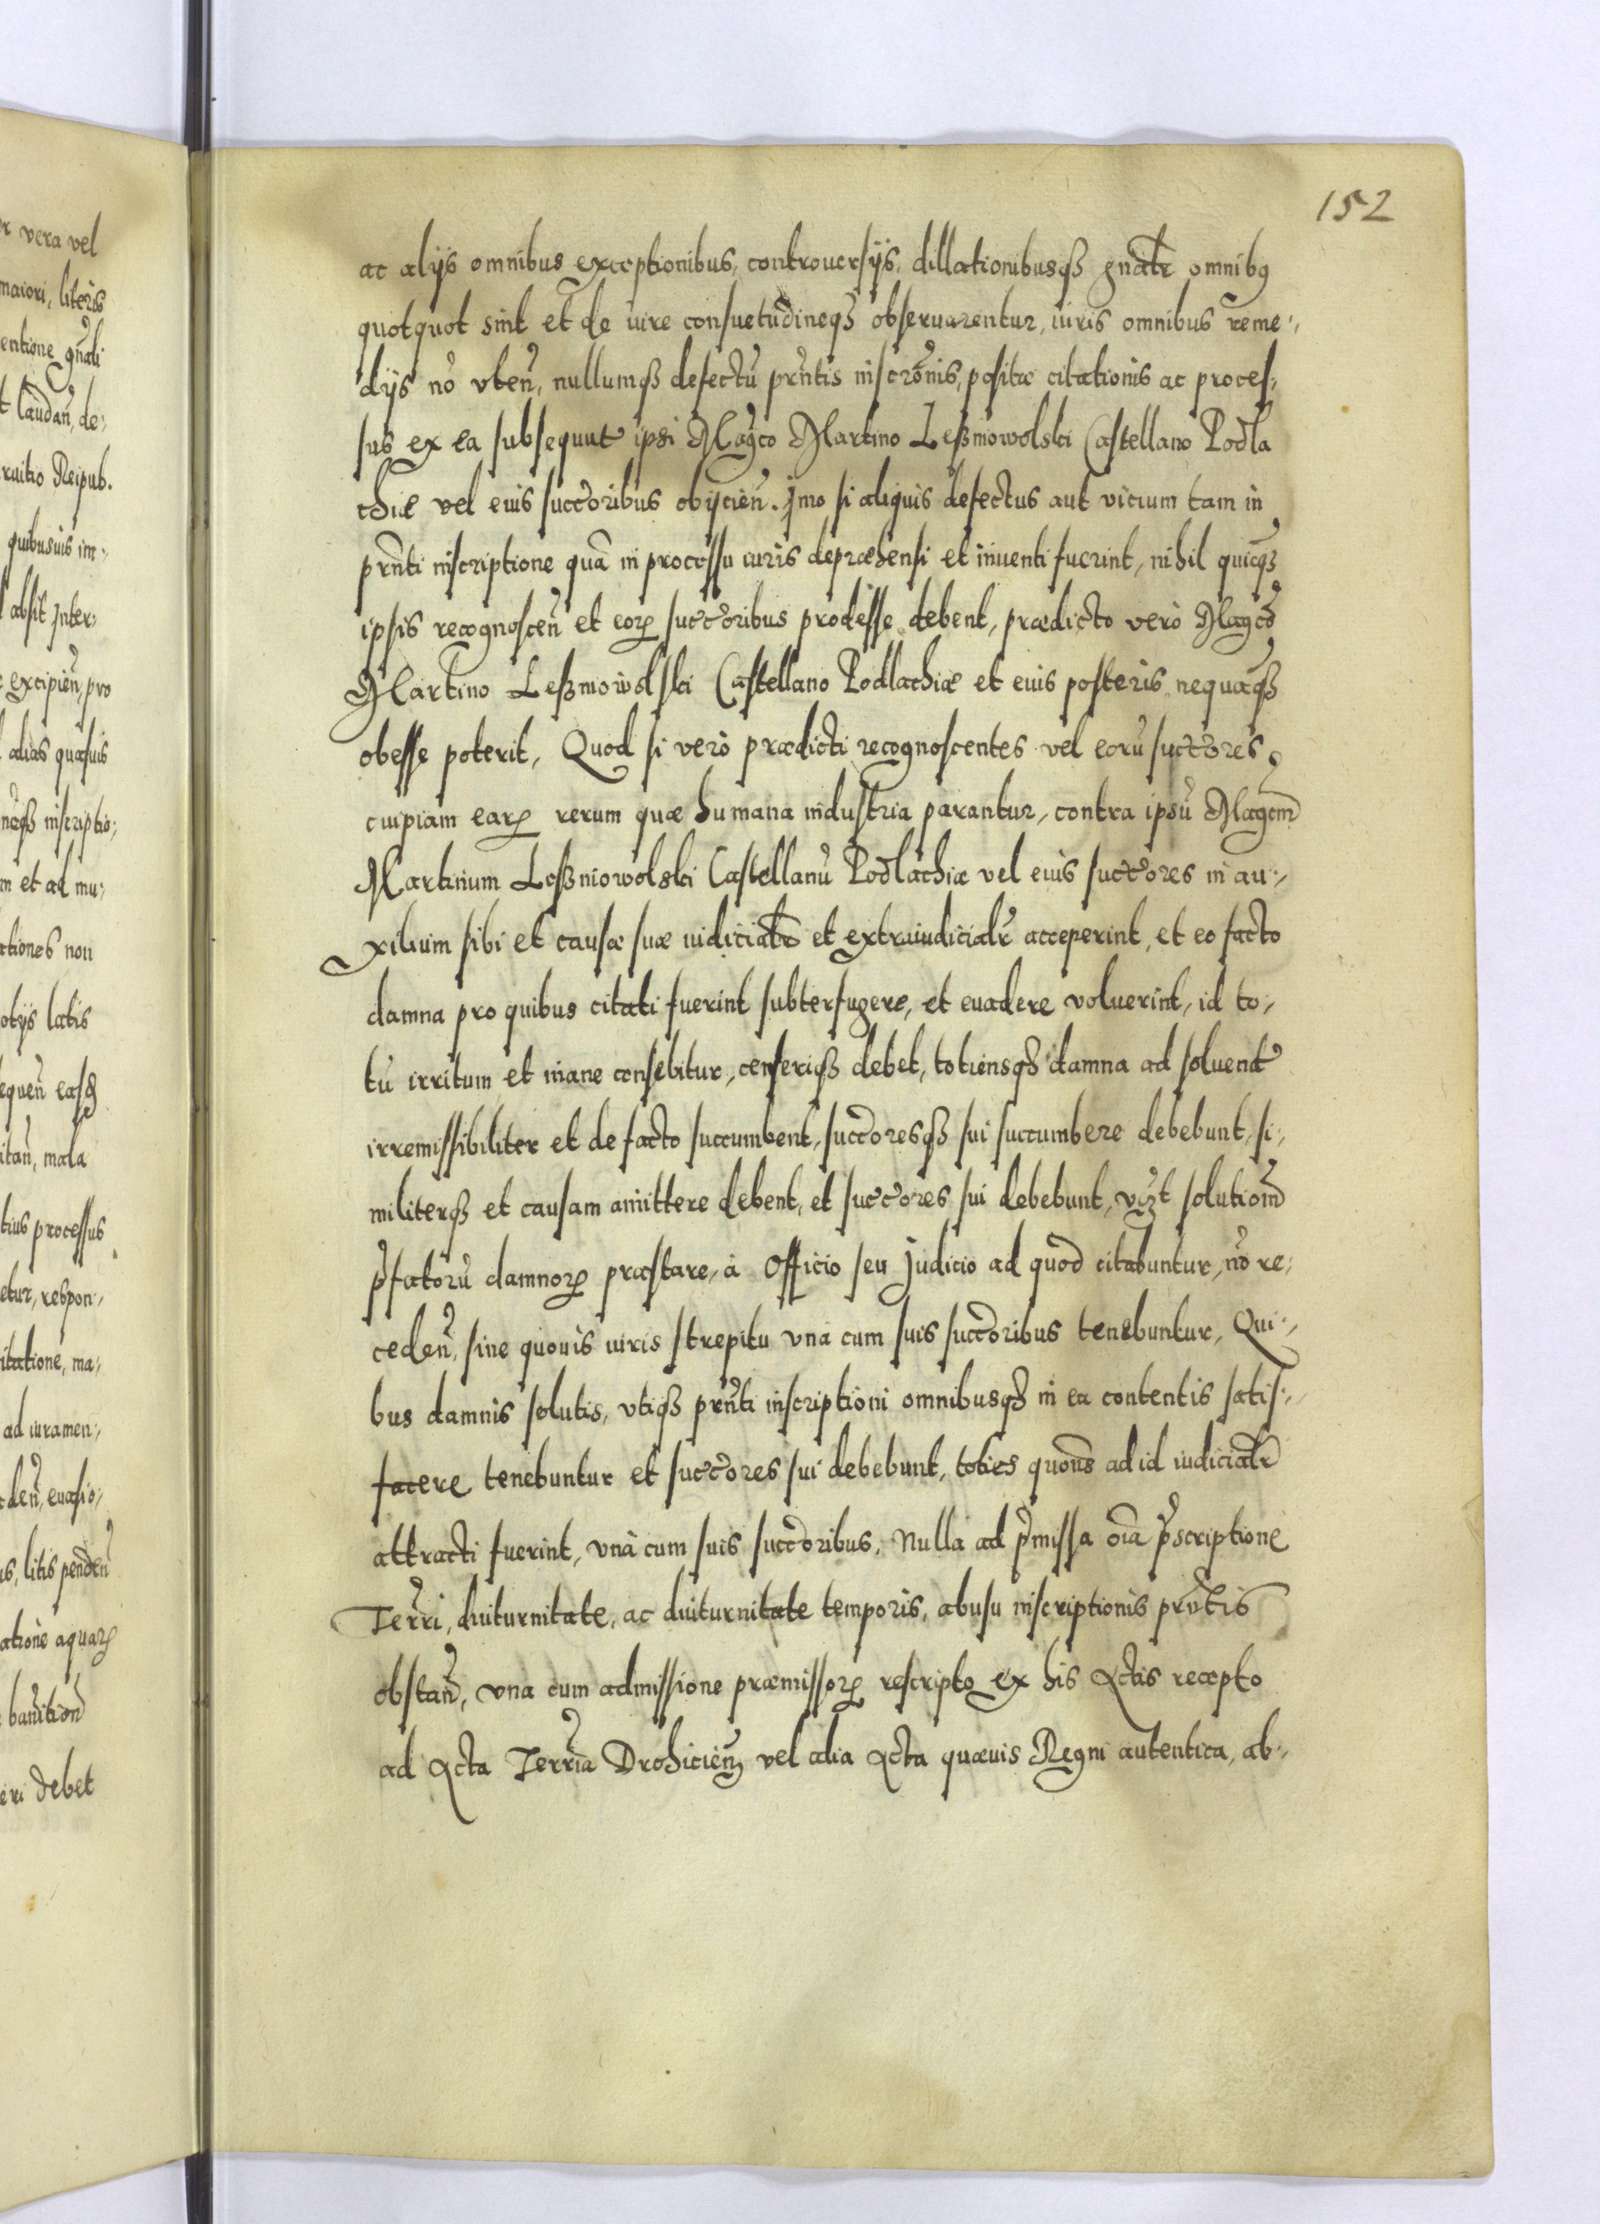 152
ac alijs omnibus exceptionibus, controuersijs, dillationibusqꝫ gnalr omnibꝯ
quotquot sint et de iure consuetudineqꝫ obseruarentur, iuris omnibus reme⸗
dijs nō vteñ, nullumqꝫ defectū pr̃ntis inscrõnis, positæ citationis ac proces⸗
sus ex ea subsequut ipsi Mag̃co Martino Leßniowolski Castellano Podla
chiæ vel eius succ̃oribus obijcieñ. Imo si aliquis defectus aut vicium tam in
pr̃nti inscriptione quā in processu iuris depræhensi et inuenti fuerint, nihil quicqꝫ
ipsis recognosceñ et eorꝝ succ̃oribus prodesse debent, prædicto verò Mag̃co
Martino Leßniowolski Castellano Podlachiæ et eius posteris nequaqꝫ
obesse poterit, Quod si verò prædicti recognoscentes vel eorū succ̃ores
cuipiam earꝝ rerum quæ humana industria parantur, contra ipsū Magcm̃
Martinum Leßniowolski Castellanū Podlachiæ vel eius succ̃ores in au⸗
xilium sibi et causæ suæ iudicialr̃ et extraiudicialr̃ acceperint, et eo facto
damna pro quibus citati fuerint subterfugere, et euadere voluerint, id to⸗
tū irritum et inane consebitur, censeriqꝫ debet, totiensqꝫ damna ad soluend
irremissibiliter et de facto succumbent, succ̃oresqꝫ sui succumbere debebunt, si⸗
militerqꝫ et causam amittere debent, et succ̃ores sui debebunt, vꝫt solutiom̃
p̃fatorū damnorꝝ præstare, à Officio seu Judicio ad quod citabuntur, nō re⸗
cedeñ, sine quouis iuris strepitu vna cum suis succ̃oribus tenebuntur, Qui⸗
bus damnis solutis, vtiqꝫ pr̃nti inscriptioni omnibusqꝫ in ea contentis satis⸗
facere tenebuntur et succ̃ores sui debebunt, toties quoñs ad id iudicialr̃
attracti fuerint, vnà cum suis succ̃oribus, Nulla ad p̃missa oĩa p̃scriptione
Terr̃i, diuturnitate, ac diuturnitate temporis, abusu inscriptionis pr̃ntis
obstañ, vna cum admissione præmissorꝝ rescripto ex his Actis recepto
ad Acta Terr̃ia Drohicieñ vel alia Acta quæuis Regni autentica, ab⸗